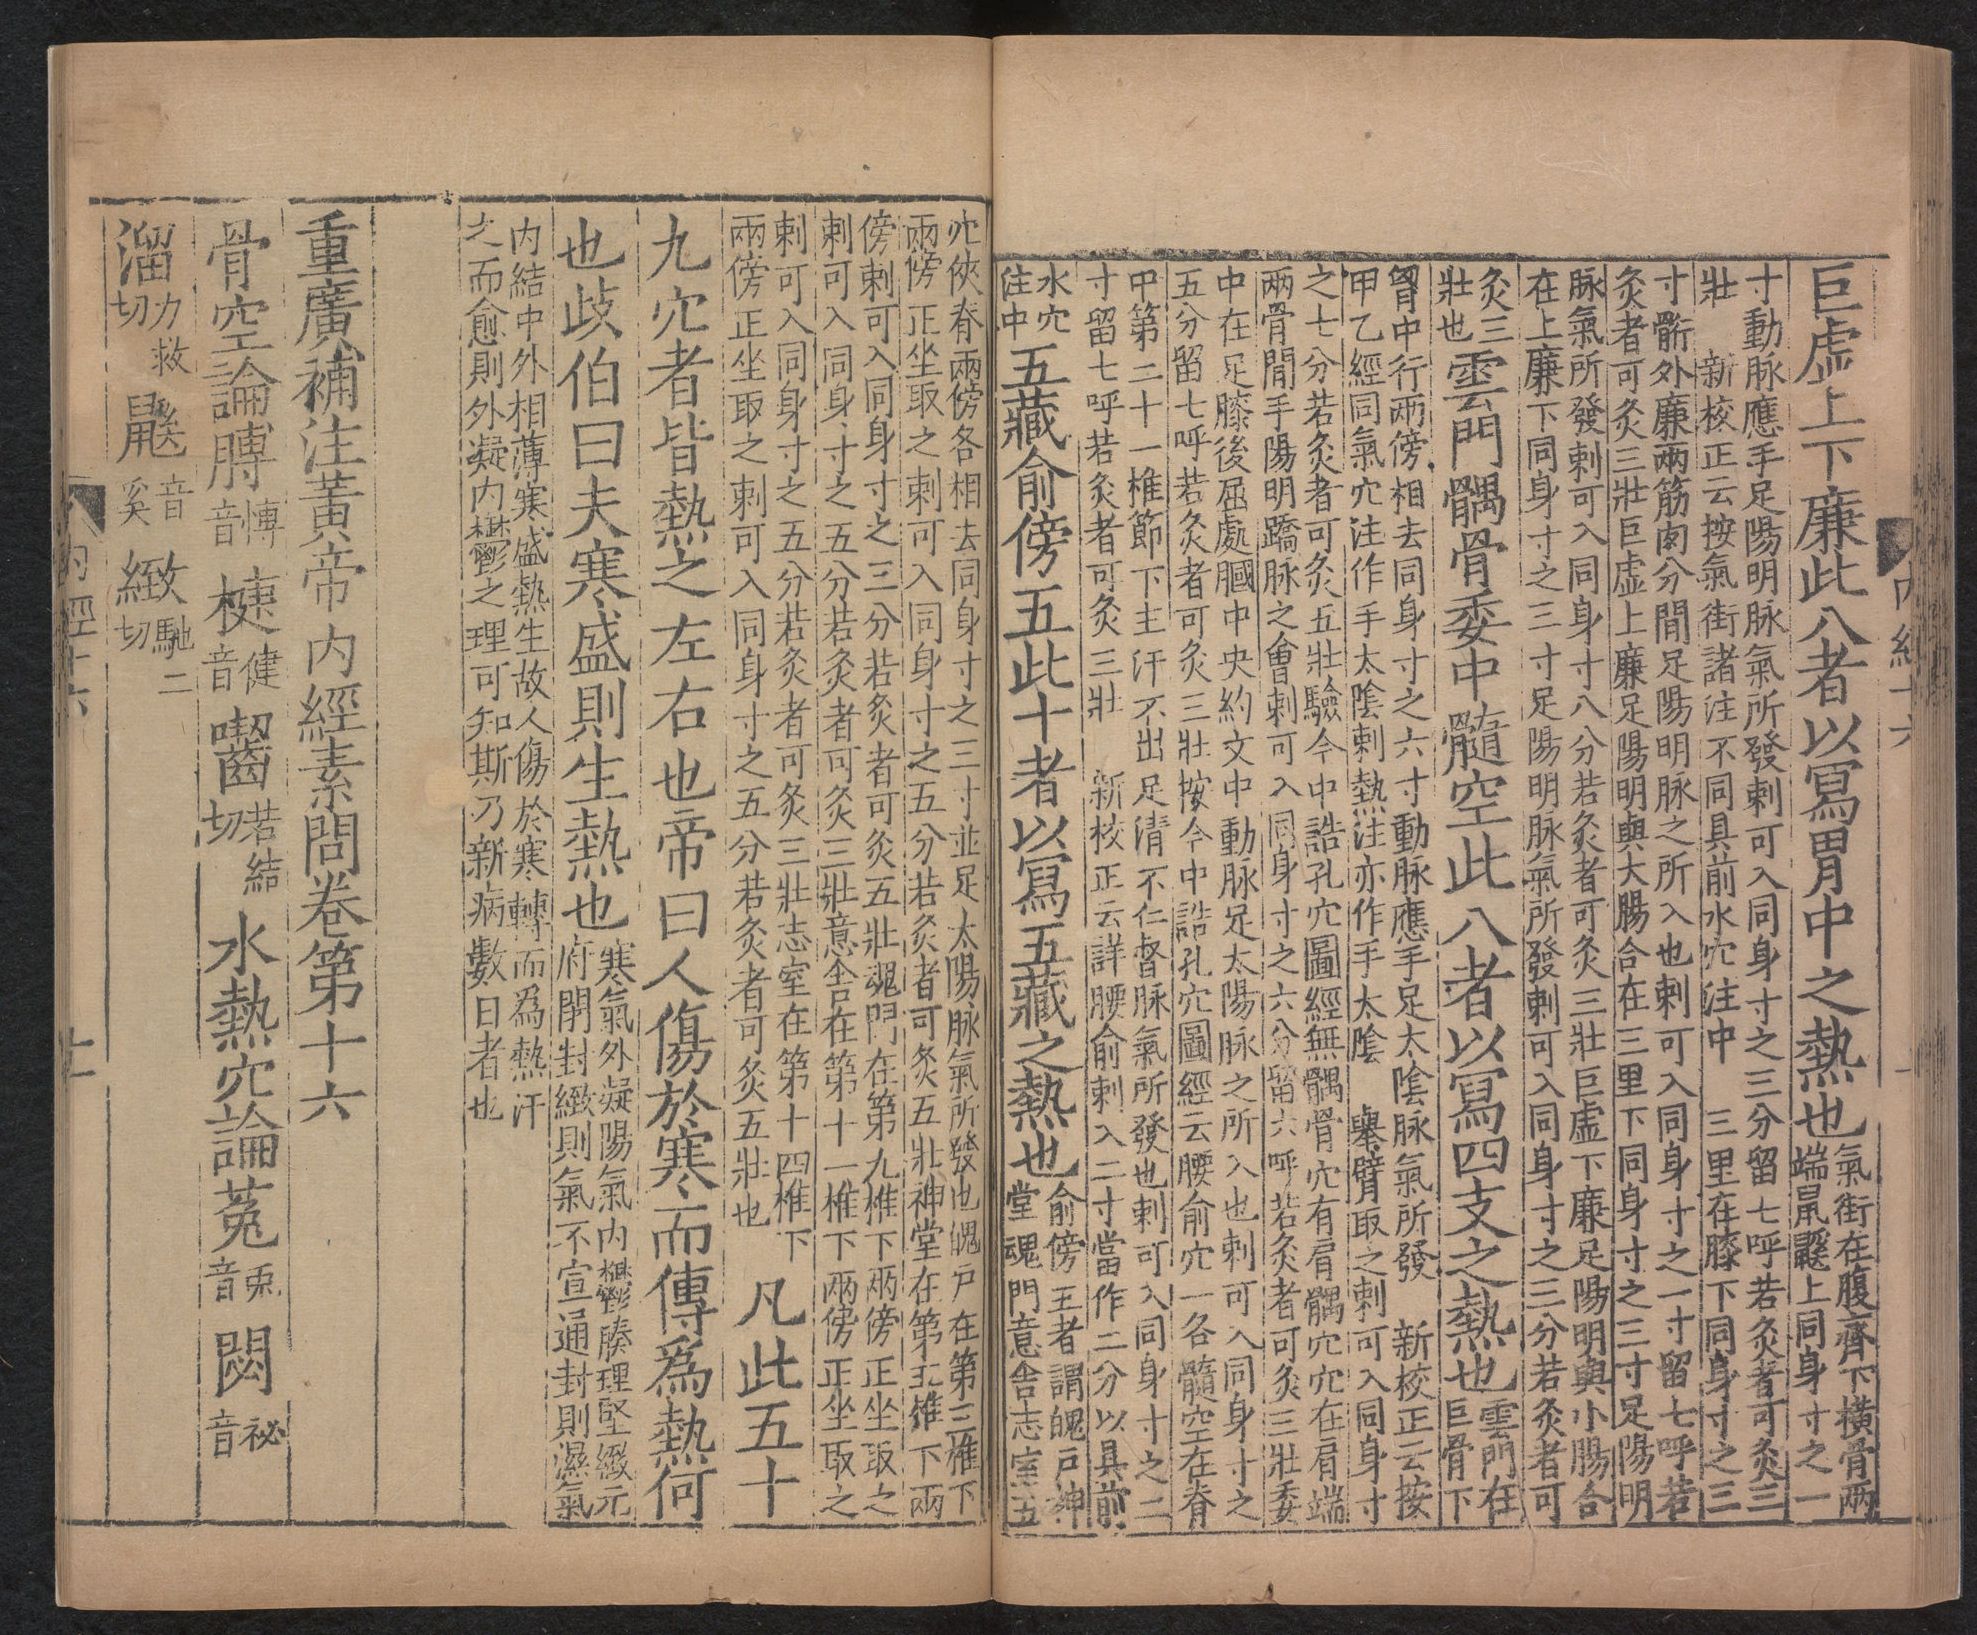 巨虛上下廉此八者以寫胃中之熱也氣街在腹齊下橫骨兩
端鼠鼷上同身寸之一
寸動脉應手足陽明脉氣所發刺可入同身寸之三分留七呼若灸者可灸三
壯 新校正云按氣街諸注不同具前水穴注中 三里在膝下同身寸之三
寸䯒外廉兩筋肉分間足陽明脉之所入也刺可入同身寸之一寸留七呼若
灸者可灸三壯巨虛上廉足陽明與大腸合在三里下同身寸之三寸足陽明
脉氣所發刺可入同身寸八分若灸者可灸三壯巨虛下廉足陽明與小腸合
在上廉下同身寸之三寸足陽明脉氣所發刺可入同身寸之三分若灸者可
灸三
壯也
雲門髃骨委中髓空此八者以寫四支之熱也雲門在
巨骨下
胷中行兩傍相去同身寸之六寸動脈應手足太陰脈氣所發 新校正云按
甲乙經同氣穴注作手太陰刺熱注亦作手太陰 舉臂取之刺可入同身寸
之七分若灸者可灸五壯驗今中誥孔穴圖經無髃骨穴有肩髃穴穴在肩端
兩骨間手陽明蹻脉之會刺可入同身寸之六分留六呼若灸者可灸三壯委
中在足膝後屈處膕中央約文中動脈足太陽脈之所入也刺可入同身寸之
五分留七呼若灸者可灸三壯按今中誥孔穴圖經云腰俞穴一各髓空在脊
中第二十一椎節下主汗不出足清不仁督脈氣所發也刺可入同身寸之二
寸留七呼若灸者可灸三壯 新校正云詳腰俞刺入二寸當作二分以具前
水穴
注中
五藏俞傍五此十者以寫五藏之熱也俞傍五者謂魄戶神
堂魂門意舍志室五
穴俠脊兩傍各相去同身寸之三寸並足太陽脉氣所發也魄戶在第三椎下
兩傍正坐取之刺可入同身寸之五分若灸者可灸五壯神堂在第五椎下兩
傍刺可入同身寸之三分若灸者可灸五壯魂門在第九椎下兩傍正坐取之
刺可入同身寸之五分若灸者可灸三壯意舍在第十一椎下兩傍正坐取之
刺可入同身寸之五分若灸者可灸三壯志室在第十四椎下
兩傍正坐取之刺可入同身寸之五分若灸者可灸五壯也
凡此五十
九穴者皆熱之左右也帝曰人傷於寒而傳為熱何
也歧伯曰夫寒盛則生熱也寒氣外凝陽氣內鬱腠理堅緻元
府閉封緻則氣不宣通封則濕氣
內結中外相薄寒盛熱生故人傷於寒轉而為熱汗
之而愈則外凝內鬱之理可知斯乃新病數日者也
重廣補注黃帝內經素問卷第十六
骨空論髆音愽楗音健齧若結切水熱穴論菟音兎閟音祕
溜力救切鼷音奚緻馳二切
內經十六
十一